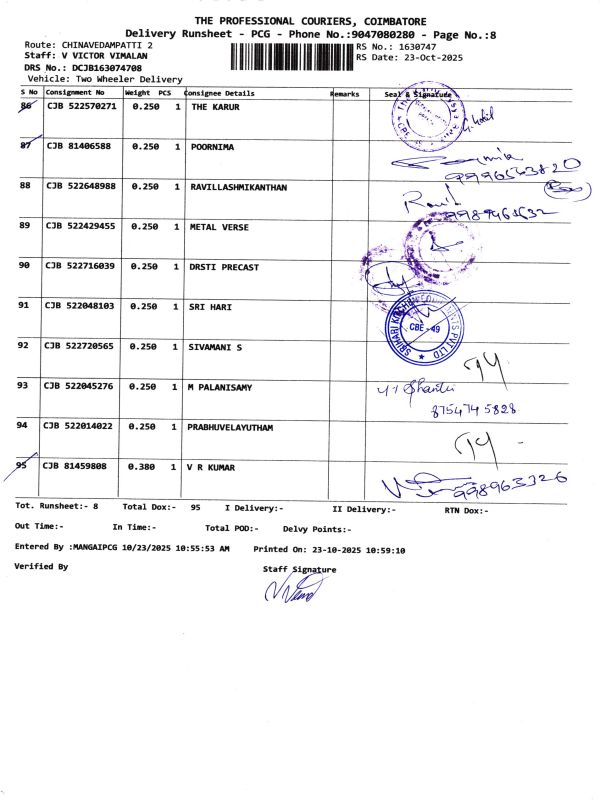 THE PROFESSIONAL COURIERS, COIMBATORE
Delivery Runsheet - PCG - Phone No.:9047080280 - Page No.:8
Route: CHINAVEDAMPATTI 2
RS No.: 1630747
Staff: V VICTOR VIMALAN
RS Date: 23-Oct-2025
DRS No.: DCJB163074708
Vehicle: Two Wheeler Delivery
S No Consignment No Weight PCS Consignee Details Remarks Seal & Signature
86 CJB 522570271 0.250 1 THE KARUR
87 CJB 81406588 0.250 1 POORNIMA
88 CJB 522648988 0.250 1 RAVILLASHMIKANTHAN
89 CJB 522429455 0.250 1 METAL VERSE
90 CJB 522716039 0.250 1 DRSTI PRECAST
91 CJB 522048103 0.250 1 SRI HARI
CBE - 49
92 CJB 522720565 0.250 1 SIVAMANI S
93 CJB 522045276 0.250 1 M PALANISAMY
8754745828
94 CJB 522014022 0.250 1 PRABHUVELAYUTHAM
95 CJB 81459808 0.380 1 V R KUMAR
Tot. Runsheet:- 8 Total Dox:- 95 I Delivery:- II Delivery:- RTN Dox:-
Out Time:- In Time:- Total POD:- Delvy Points:-
Entered By :MANGAIPCG 10/23/2025 10:55:53 AM Printed On: 23-10-2025 10:59:10
Verified By Staff Signature